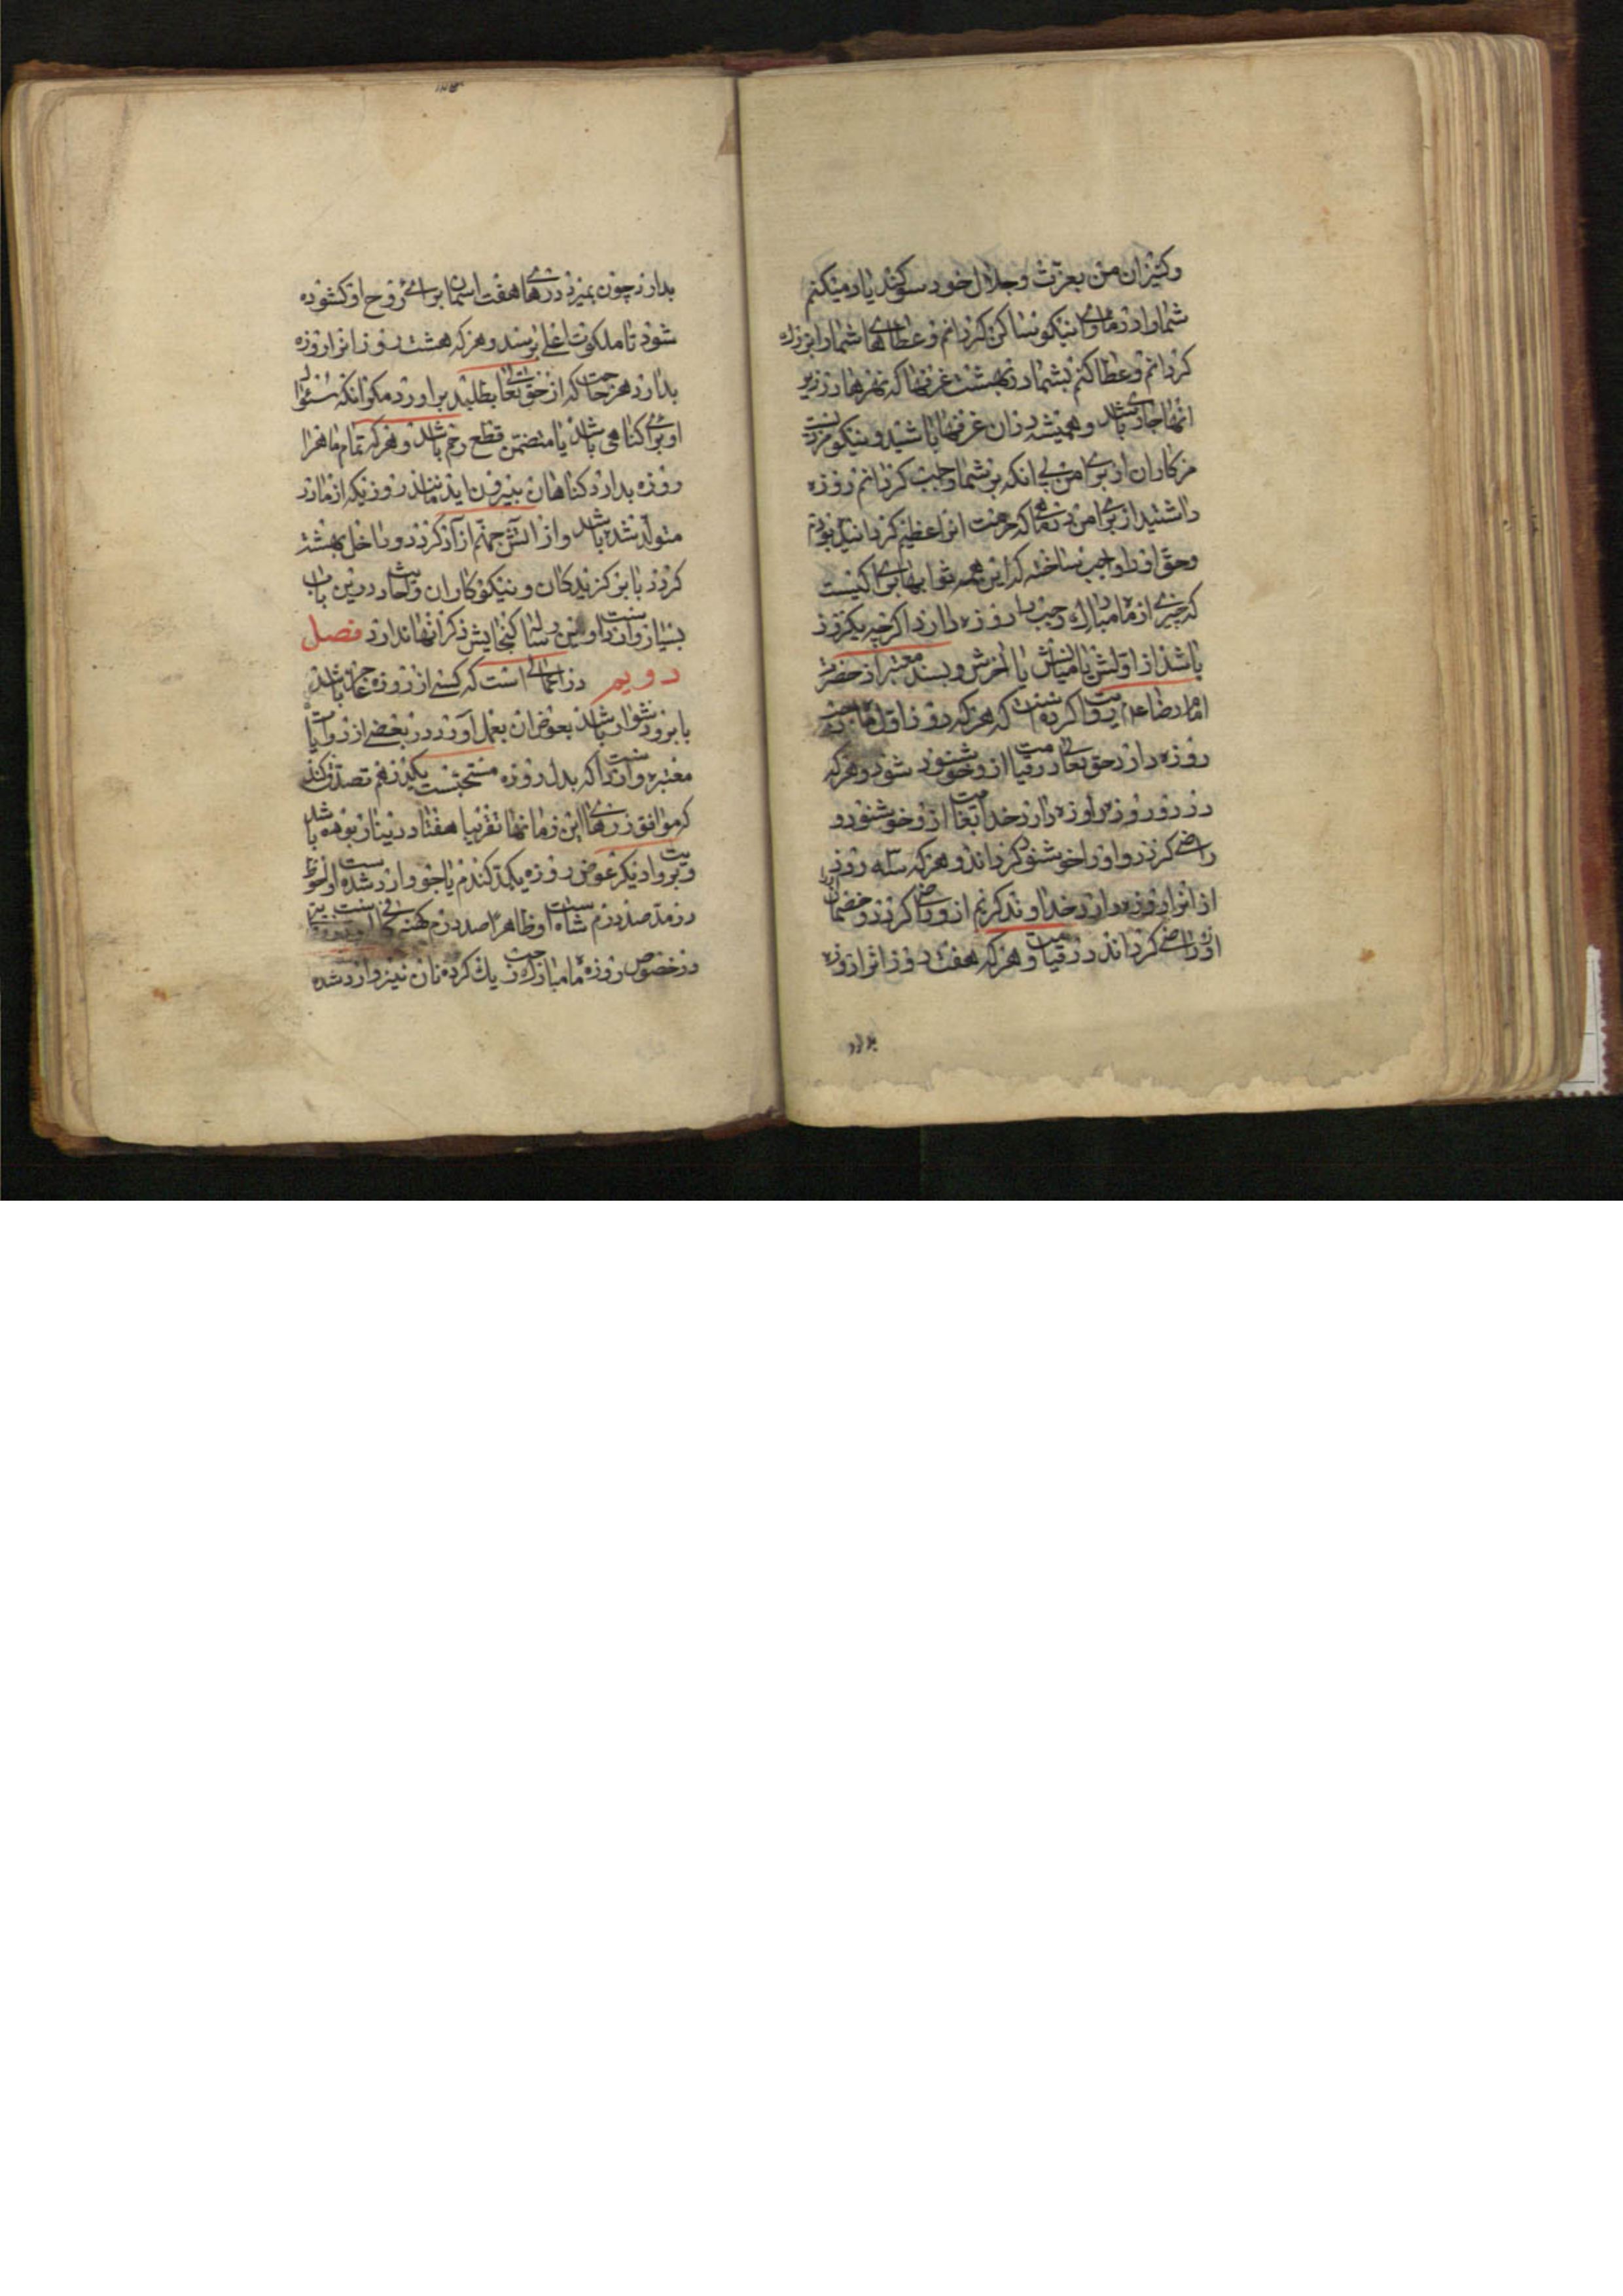 وکنیزان من بعزت و جلال خود سوکند یاد میکنم
شما را در ماوای نیکو ساکن کردانم و عطاهای شما را بزرك
کردانم و عطا کنم بشما در بهشت غرفها که نهرها در زیر
انها جاری باشد و همیشه در ان غرفها باشید و نیکو مزدیست
مزد کاران از برای من بی انکه بر شما واجب کردانم روزه
داشتید از برای من در ماهی که حرمت انرا عظیم کردانیده بودم
وحق او را واجب ساخته که این همه ثوابها برای کسیست
که چیزی از ماه مبارك رجب را روزه دارد اکرچه یکروز
باشد از اولش یا میانش یا اخرش و بسند معتبر از حضرت
امام رضا علیه روایت کرده است که هرکه روز اول ماه رجب
روزه دارد حق تعالی در قیامت ازو خوشنود شود و هرکه
دو روز روزه دارد خدا در قیامت ازو خوشنود و
راضی کردد و او را خوشنود کرداند و هرکه سه روز
از انرا روزه دارد خداوند کریم ازو راضی کردد و خصمان
او را راضی کرداند در قیامت و هرکه هفت روز انرا روزه
بدارد
۱۳۵
بدارد چون بمیرد درهای هفت اسمان برای روح او کشوده
شود تا ملکوت اعلی برسد و هرکه هشت روز انرا روزه
بدارد هر حاجت که از حق تعالی بطلبد براورد مکر انکه سئوال
او برای کناهی باشد یا متضمن قطع رحم باشد و هرکه تمام ماه را
روزه بدارد از کناهان بیرون اید مانند روزیکه از مادر
متولد شده باشد و از اتش جهنم ازاد کردد و داخل بهشت
کردد با برکزیدکان و نیکوکاران و احادیث درین باب
بسیار وارد است و این رساله کنجایش ذکر انها ندارد فصل
دویم در اعمالی است که کسی از روزه عاجز باشد
یا برو دشوار باشد بعوض ان بعمل آورد در بعضی از روایات
معتبره وارد است که بدل روزه مستحب یکدرهم تصدق کند
که موافق زرهای این زمانها تقریبا هفتاد دینار بوده باشد
و بروایت دیکر عوض روزه یکمد کندم یا جو وارد شده است و احوط
در مد صد درم شاه است و ظاهرا صد درم کهنه کافی است
در خصوص روزه ماه مبارك رجب یك کرده نان نیز وارد شده